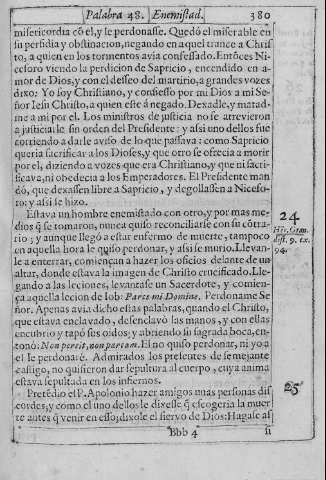 Palabra 48. Enemistad. 380
misericordia cō el, y le perdonasse. Quedó el miserable en
su perfidia y obstinacion, negando en aquel trance a Chris
to, a quien en los tormentos avia confessado. Entōces Ni-
ceforo viendo la perdicion de Sapricio, encendido en a-
mor de Dios, y con el desseo del martirio, a grandes vozes
dixo: Yo soy Christiano, y confiesso por mi Dios a mi Se-
ñor Iesu Christo, a quien este á negado. Dexadle, y matad-
me a mi por el. Los ministros de justicia no se atrevieron
a justiciarle sin orden del Presidente: y assi uno dellos fue
corriendo a darle aviso de lo que passava: como Sapricio
queria sacrificar a los Dioses, y que otro se ofrecia a morir
por el, diziendo a vozes que era Christiano, y que ni sacri-
ficava, ni obedecia a los Emperadores. El Presidente man
dó, que dexassen libre a Sapricio, y degollassen a Nicefo-
ro: y assi se hizo.
Estava un hombre enemistado con otro, y por mas me-
dios q̃ se tomaron, nunca quiso reconciliarse con su cōtra-
rio; y aunque llegó a estar enfermo de muerte, tampoco
en aquella hora le quiso perdonar, y assi se murio. Llevan-
le a enterrar, comiençan a hazer los oficios delante de un
altar, donde estava la imagen de Christo crucificado. Lle-
gando a las leciones, levantase un Sacerdote, y comien-
ça aquella lecion de Iob: Parce mi Domine, Perdoname Se
ñor. Apenas avia dicho estas palabras, quando el Christo,
que estava enclavado, desenclavó las manos, y con ellas
encubrio y tapó sus oidos; y abriendo su sagrada boca, en-
tonó: Non percit, non parcam. El no quiso perdonar, ni yo a
el le perdonaré. Admirados los presentes de semejante
castigo, no quisieron dar sepultura al cuerpo, cuya anima
estava sepultada en los infiernos.
Pretēdio el P. Apolonio hazer amigos unas personas dis
cordes; y como el uno dellos le dixesse q̃ escogeria la muer
te antes q̃ venir en esso; dixole el siervo de Dios: Hagase as
Bbb 4 si
24
dist. 9. ex.
94.
25